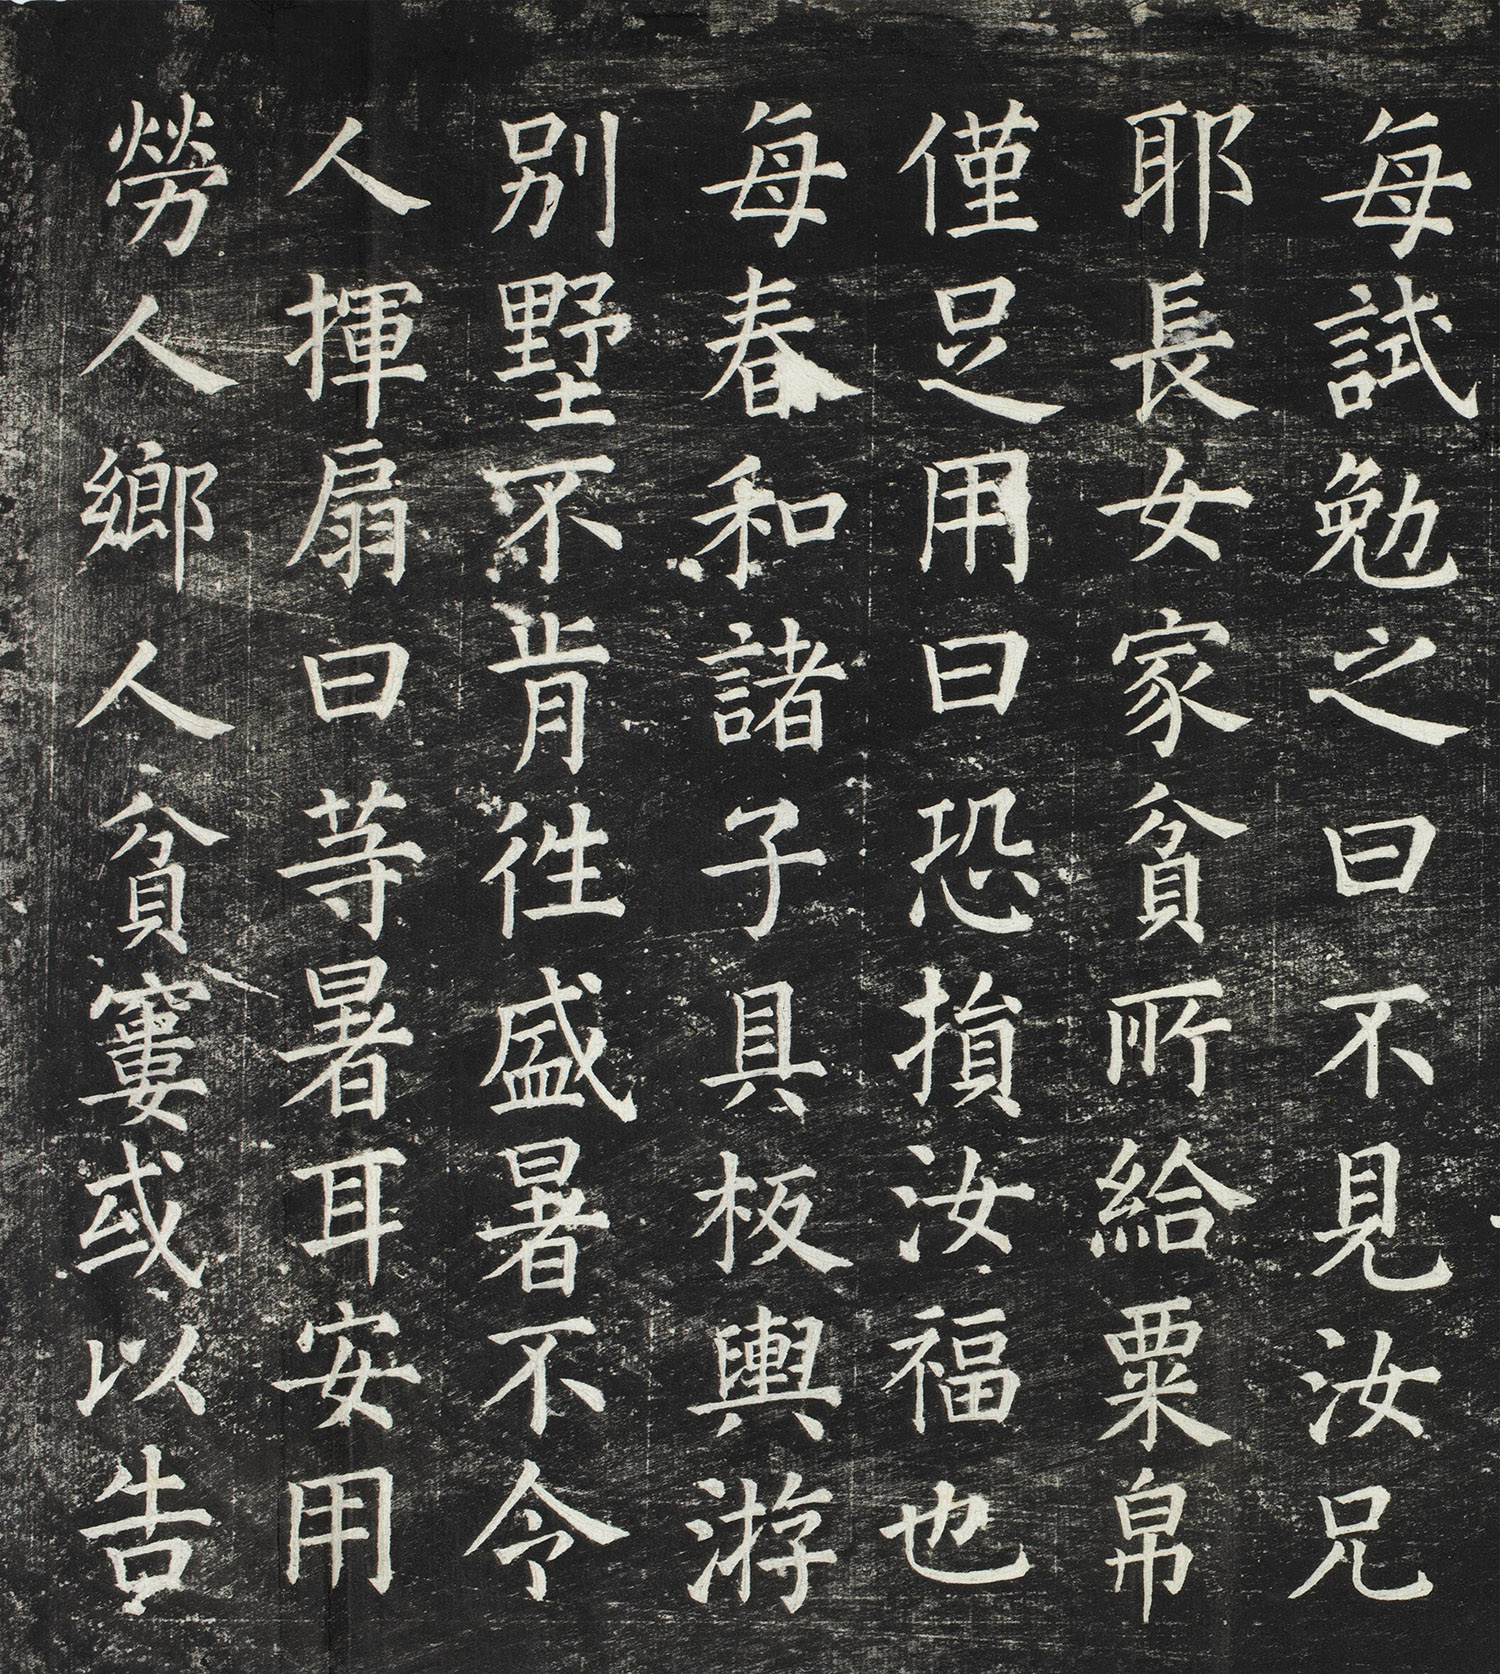 每試勉之曰不見汝兄
耶長女家貧所給粟帛
僅足用曰恐損汝福也
每春和諸子具板輿游
別墅不肯往盛暑不令
人揮扇曰等暑耳安用
勞人鄉人貧窶或以告